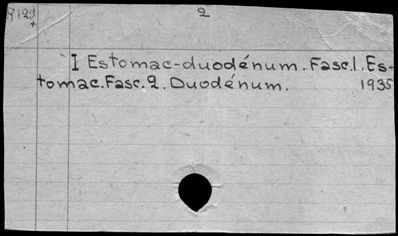 2
I Estomac-duodénum. Fasc.1. Es-
tomac. Fasc. 2. Duodénum. 1935